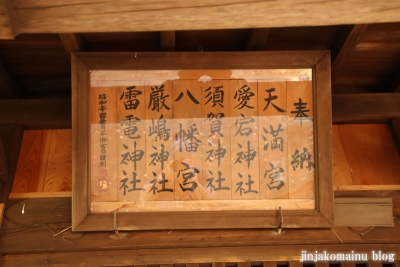 奉納
天満宮
愛宕神社
須賀神社
八幡宮
厳嶋神社
雷電神社
jinjakomainu blog